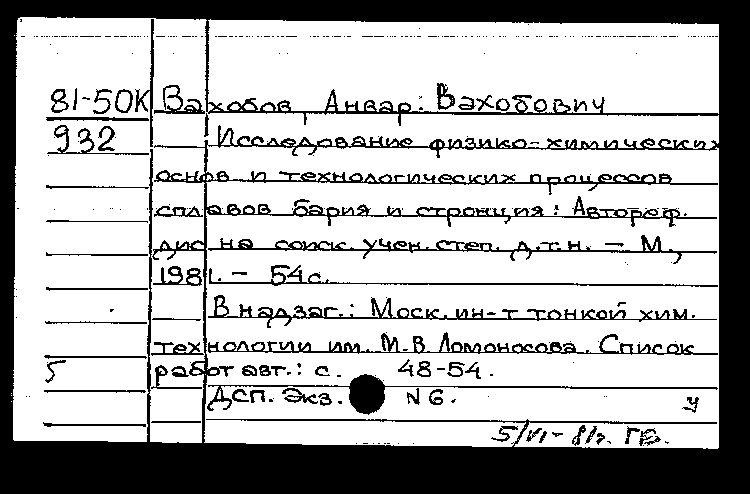 81-50К Вахобов, Анвар: Вахобович
932 Исследование физико-химических
основ и технологических процессов
сплавов бария и стронция: Автореф.
дис на соиск. учен. степ. д.т.н. - М.,
1981. - 54с.
В надзаг.: Моск. ин-т тонкой хим.
технологии им. М.В. Ломоносова. Список
5 работ авт.: с. 48-54.
ДСП. Экз. N 6. У
5/VI-81г. ГВ.